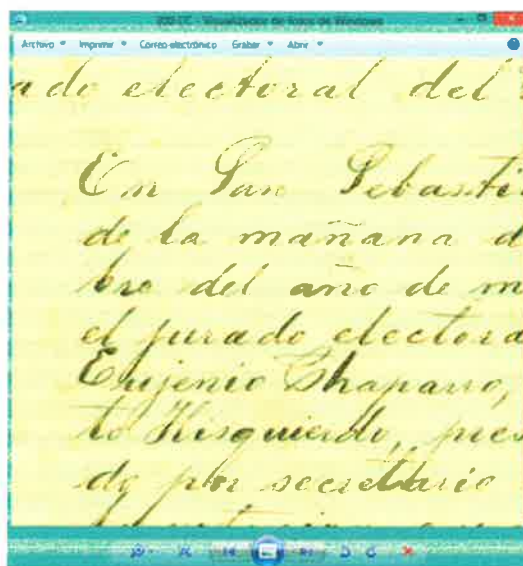 Visualizador de fotos de Windows
Archivo Imprimir Correo electrónico Grabar Abrir
ado electoral del
En San Sebasti
de la mañana d
bre del año de m
el jurado electora
Eujenio Chaparro,
to Hisquierdo, pres
do por secretario